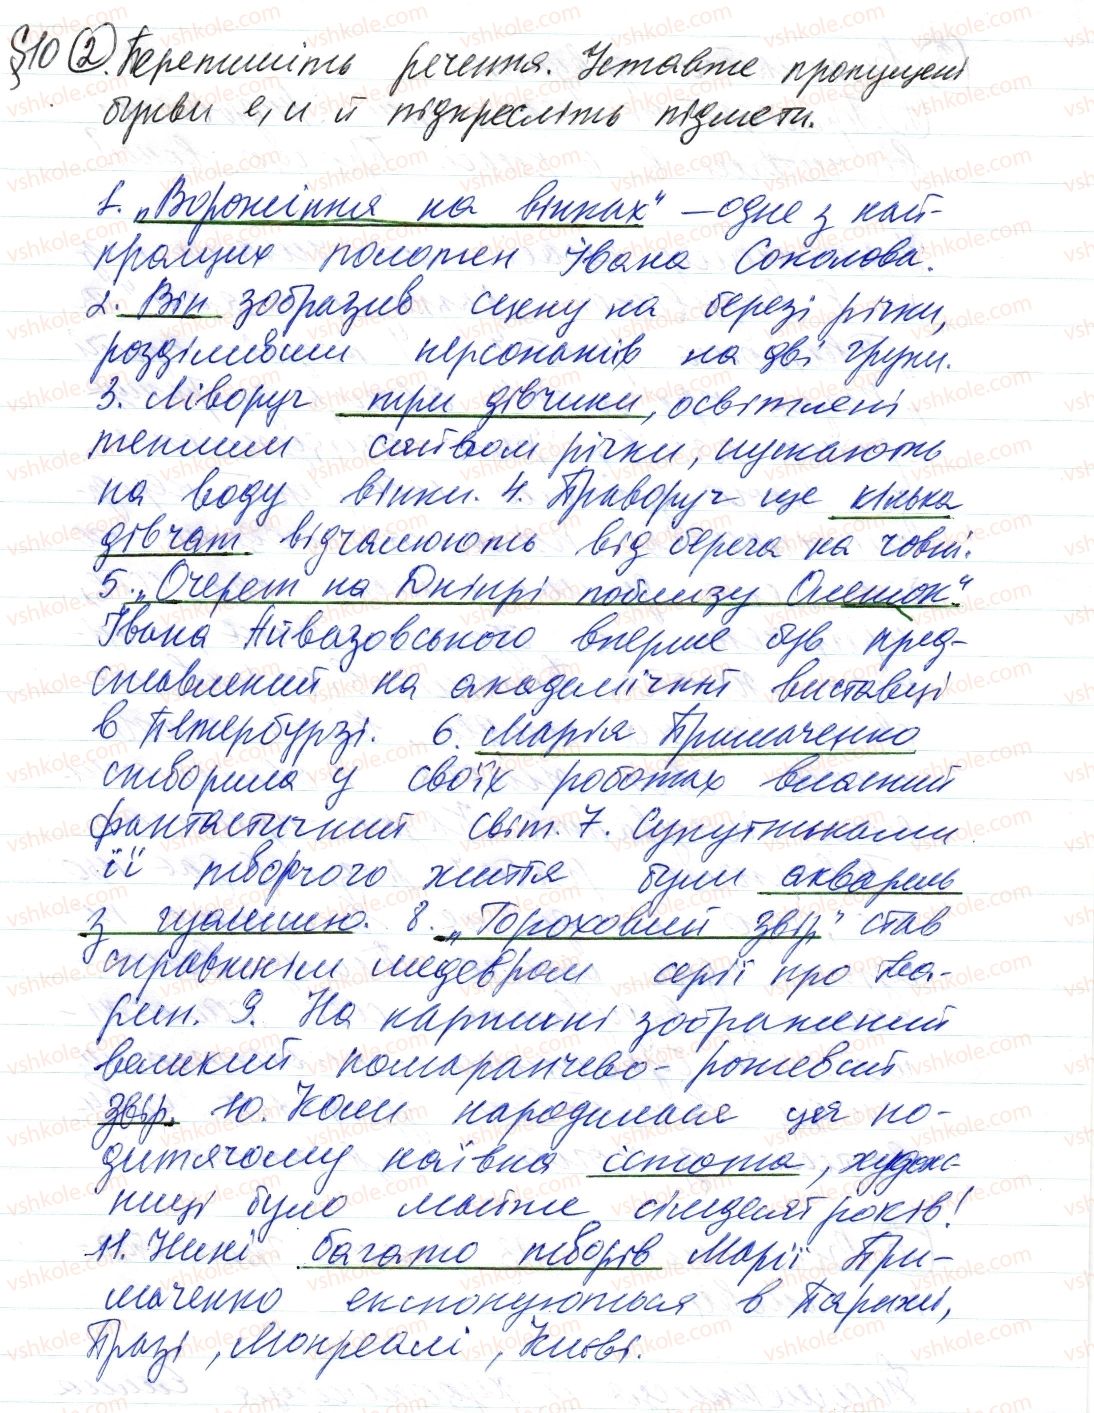 §10 (2). Перепишіть речення. Уставте пропущені
букви е, и й підкресліть підмети.
1. „Ворожіння на вінках“ – одне з най-
кращих полотен Івана Соколова.
2. Він зобразив сцену на березі річки,
розділивши персонажів на дві групи.
3. Ліворуч три дівчини, освітлені
теплим сяйвом річки, пускають
на воду вінки. 4. Праворуч ще кілька
дівчат відчалюють від берега на човні.
5. „Очерет на Дніпрі поблизу Олешок“
Івана Айвазовського вперше був пред-
ставлений на академічній виставці
в Петербурзі. 6. Марія Примаченко
створила у своїх роботах власний
фантастичний світ. 7. Супутниками
її творчого життя були акварель
з гуашшю. 8. „Гороховий звір“ став
справжнім шедевром серії про тва-
рин. 9. На картині зображений
великий помаранчево-рожевий
звір. 10. Коли народилася ця по-
дитячому наївна істота, худож-
ниці було майже сімдесят років!
11. Нині багато творів Марії При-
маченко експонуються в Парижі,
Празі, Монреалі, Києві.